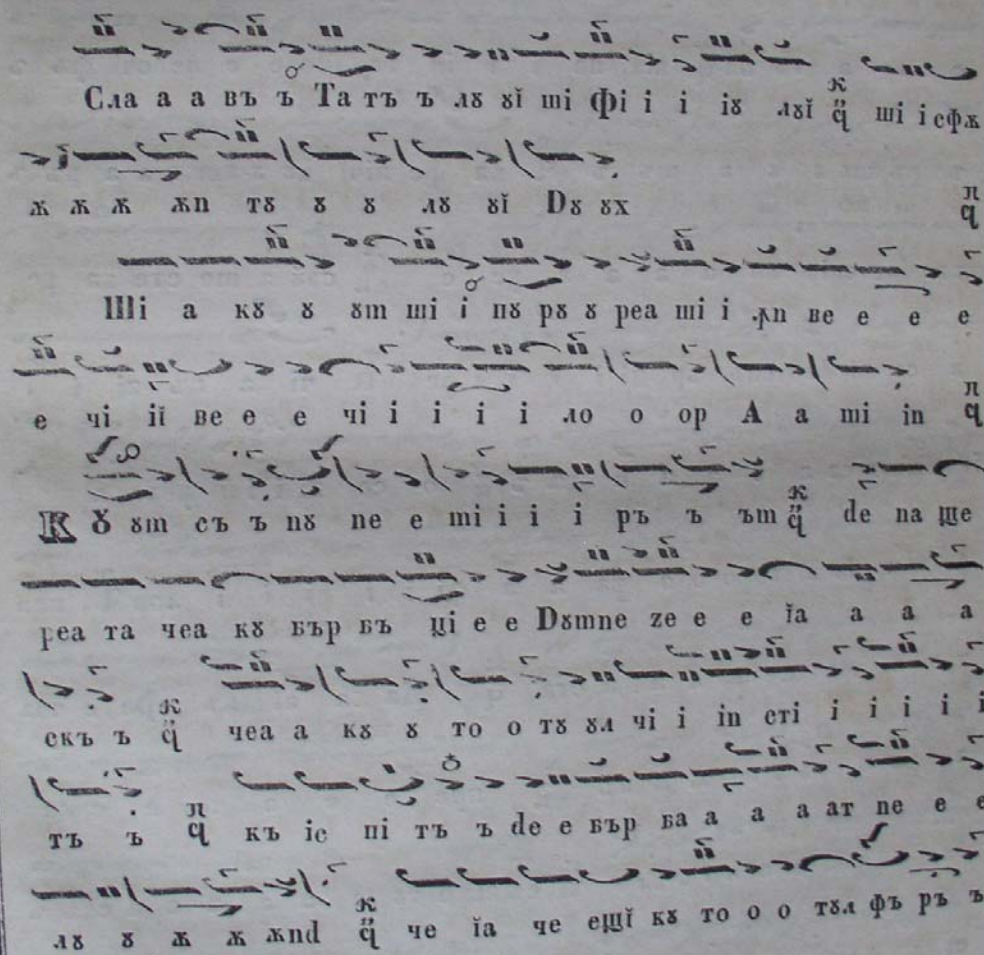 Сла а а въ ъ Та тъ ъ лꙋ ꙋї ші Фі і і іꙋ лꙋї ші ісфѫ
ѫ ѫ ѫ ѫn тꙋ ꙋ ꙋ лꙋ ꙋї Dꙋ ꙋх
Ші а кꙋ ꙋ ꙋm ші і пꙋ рꙋ ꙋ реа ші і ꙟn ве е е е
е чі її ве е е чі і і і і ло о ор А а mі in
Кꙋ ꙋm съ ъ пꙋ пе е mі і і і ръ ъ ъm de па ще
реа та чеа кꙋ бър бъ ці е е Dꙋmne zе е е їа а а а
скъ ъ чеа а кꙋ ꙋ то о тꙋ ꙋл чі і in сті і і і і і
тъ ъ къ іс пі тъ ъ de е бър ба а а а ат пе е е
лꙋ ꙋ ѫ ѫ ѫnd че їа че ещї кꙋ то о о тꙋл фъ ръ ъ